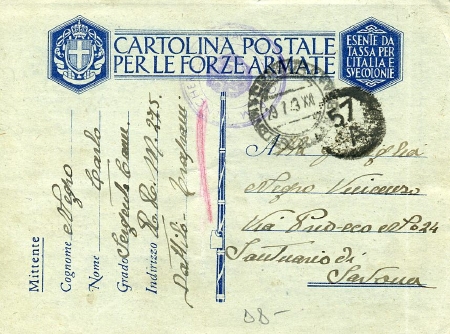 CARTOLINA POSTALE
PER LE FORZE ARMATE
ESENTE DA
TASSA PER
L'ITALIA E
SVE COLONIE
57
A
Mittente
Cognome Negro
Nome Carlo
Grado Sergente
Indirizzo P. M. 275
Trapani
Alla famiglia
Negro Vincenzo
Via
Santuario di
Savona